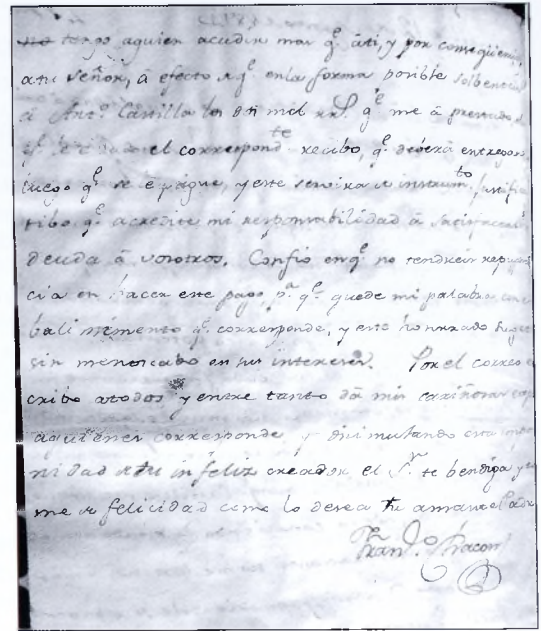 no tengo aquien acudir mas q.e áti, y por conseqüencia
atu señor, á efecto de q.e enla forma posible solbenteis
á Ant.o Castilla los mil r.s q.e me á prestado
el correspond.te recibo, q.e deberá entregar
luego q.e se le pague, y este servira de instrum.to justifica
tibo q.e acredite mi responsabilidad á satisfacer
deuda á vosotros. Confio enq.e no tendreis repugnan
cia en hacer este pago p.a q.e quede mi palabra con
bali mimento q.e corresponde, y este honrrado
sin menoscabo en sus intereses. Por el correo e
cribo atodos y entre tanto dá mis cariñosas esp
aquienes corresponde y disimulando esta impo
nidad de tu infeliz creador el S.r te bendiga y
me de felicidad como lo desea tu amante Padre
Fran.co Chacon